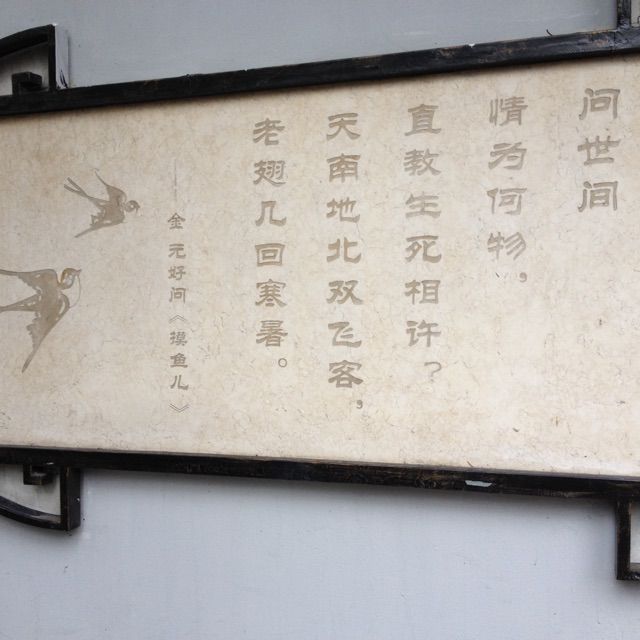 问世间
情为何物，
直教生死相许？
天南地北双飞客，
老翅几回寒暑。
金 元好问《摸鱼儿》